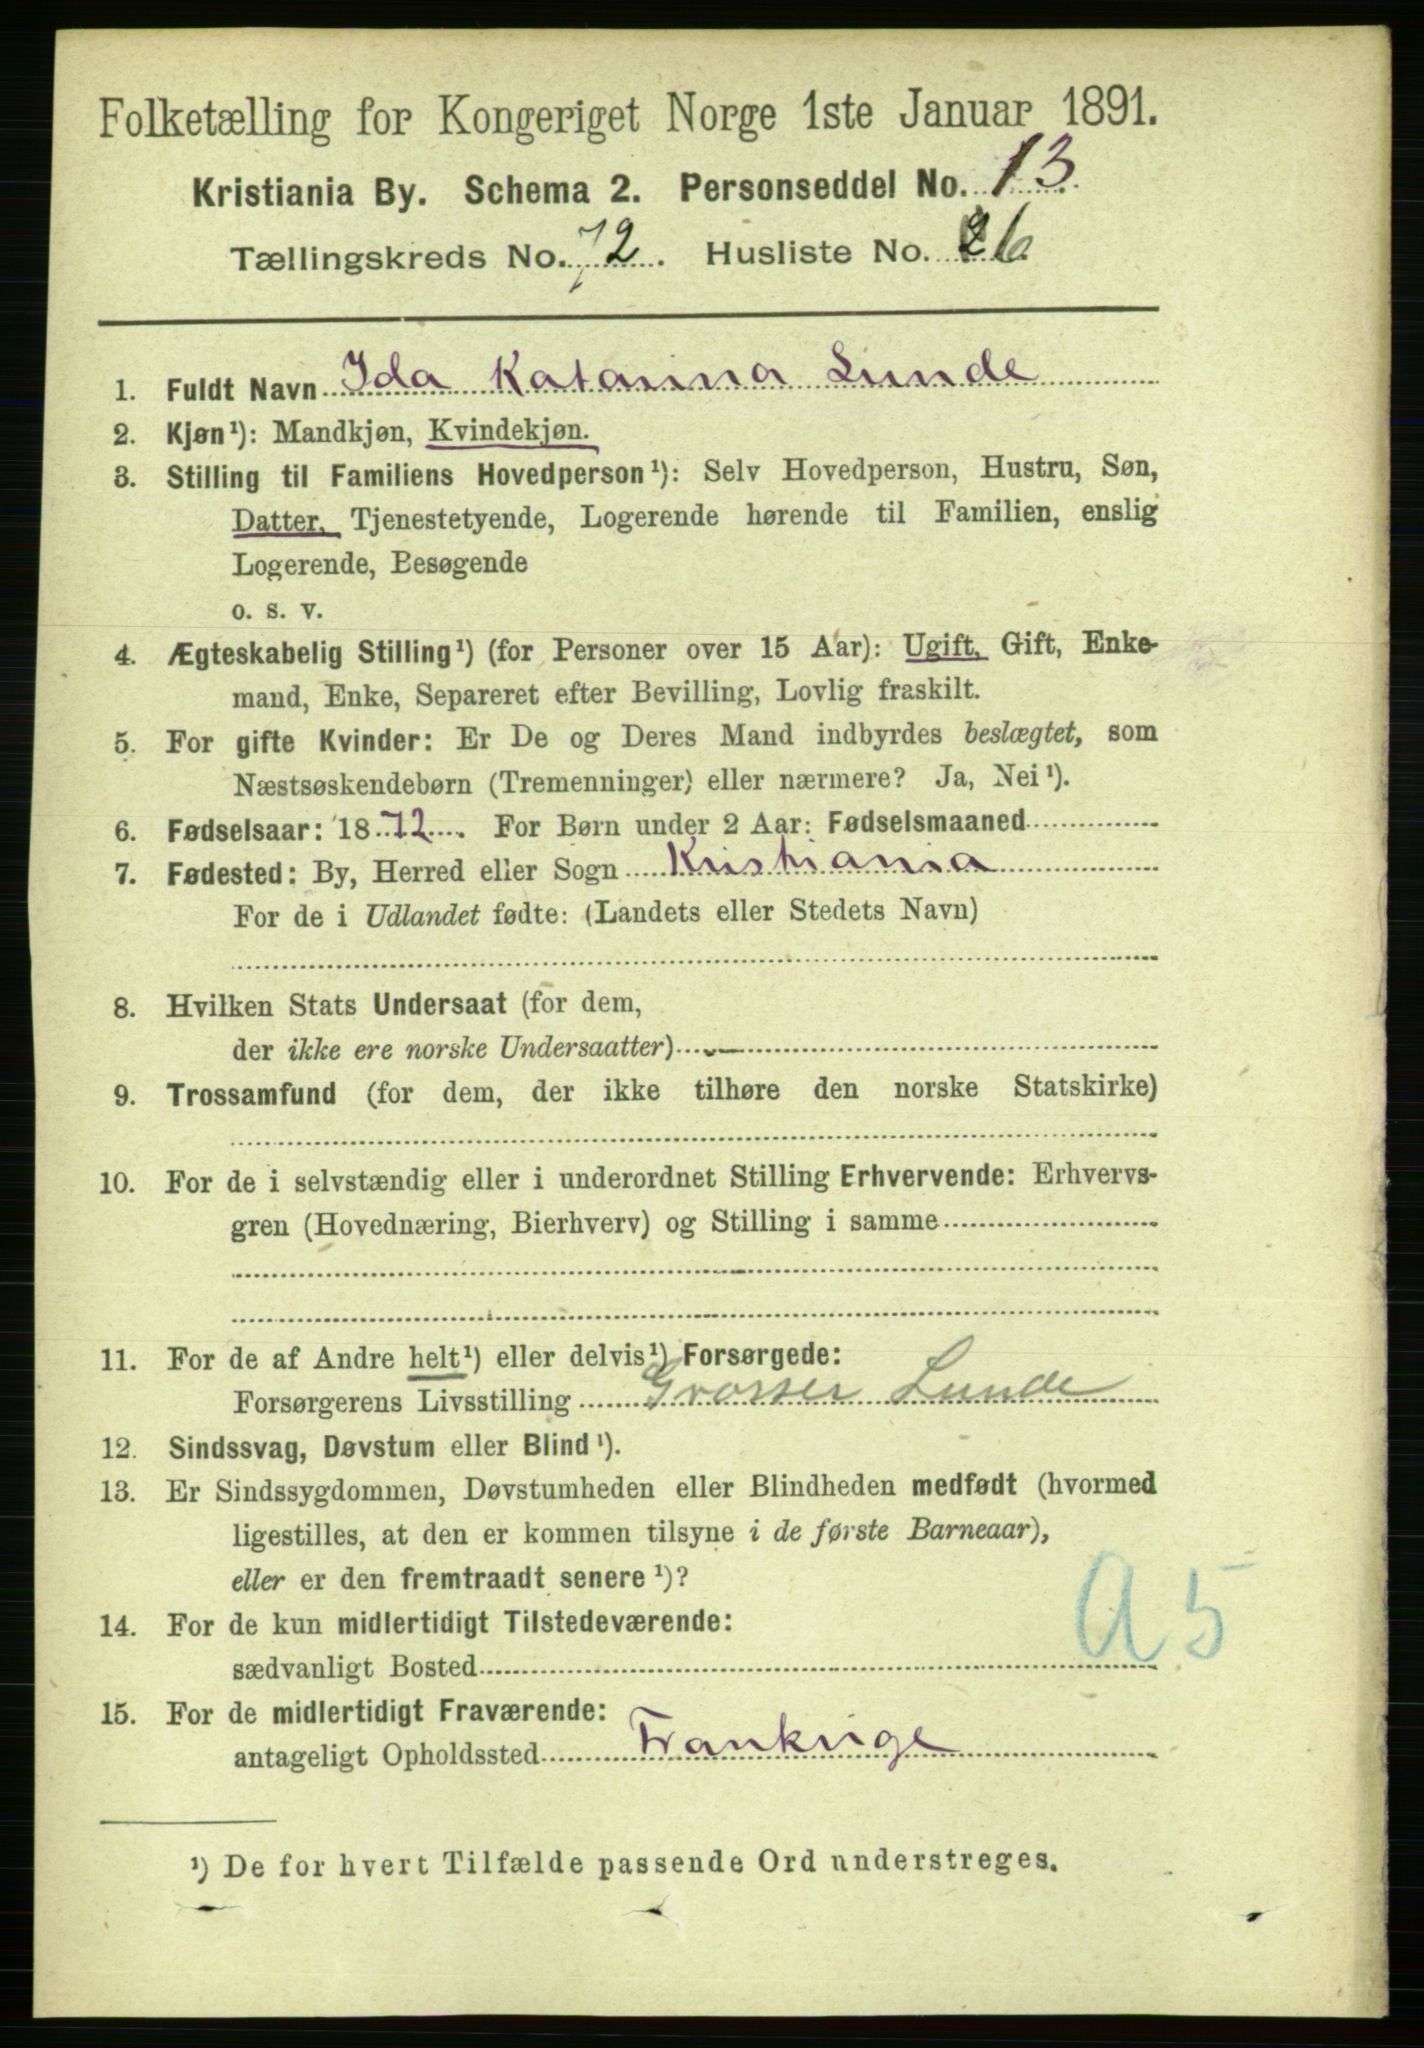 Folketælling for Kongeriget Norge 1ste Januar 1891.
Kristiania By. Schema 2. Personseddel No. 13.
Tællingskreds No. 72. Husliste No. 26
1. Fuldt Navn Ida Katarina Lunde
2. Kjøn¹): Mandkjøn, Kvindekjøn.
3. Stilling til Familiens Hovedperson¹): Selv Hovedperson, Hustru, Søn,
Datter, Tjenestetyende, Logerende hørende til Familien, enslig
Logerende, Besøgende
o. s. v.
4. Ægteskabelig Stilling¹) (for Personer over 15 Aar): Ugift, Gift, Enke-
mand, Enke, Separeret efter Bevilling, Lovlig fraskilt.
5. For gifte Kvinder: Er De og Deres Mand indbyrdes beslægtet, som
Næstsøskendebørn (Tremenninger) eller nærmere? Ja, Nei¹).
6. Fødselsaar: 1872. For Børn under 2 Aar: Fødselsmaaned
7. Fødested: By, Herred eller Sogn Kristiania
For de i Udlandet fødte: (Landets eller Stedets Navn)
8. Hvilken Stats Undersaat (for dem,
der ikke ere norske Undersaatter)
9. Trossamfund (for dem, der ikke tilhøre den norske Statskirke)
10. For de i selvstændig eller i underordnet Stilling Erhvervende: Erhvervs-
gren (Hovednæring, Bierhverv) og Stilling i samme
11. For de af Andre helt¹) eller delvis¹) Forsørgede:
Forsørgerens Livsstilling Grosser Lunde
12. Sindssvag, Døvstum eller Blind¹).
13. Er Sindssygdommen, Døvstumheden eller Blindheden medfødt (hvormed
ligestilles, at den er kommen tilsyne i de første Barneaar),
eller er den fremtraadt senere¹)?
14. For de kun midlertidigt Tilstedeværende:
sædvanligt Bosted
a 5
15. For de midlertidigt Fraværende:
antageligt Opholdssted Frankrige
¹) De for hvert Tilfælde passende Ord understreges.